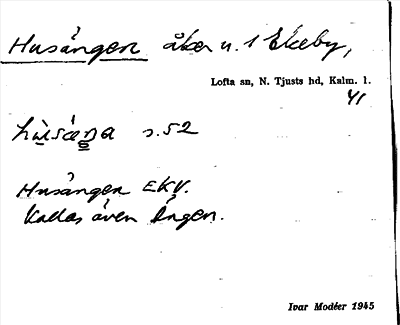 Husängen åker u. 1 Ekeby,
Lofta sn, N. Tjusts hd, Kalm. l.
41
s. 52
Husängen EKV.
Kallas även Ängen.
Ivar Modéer 1945